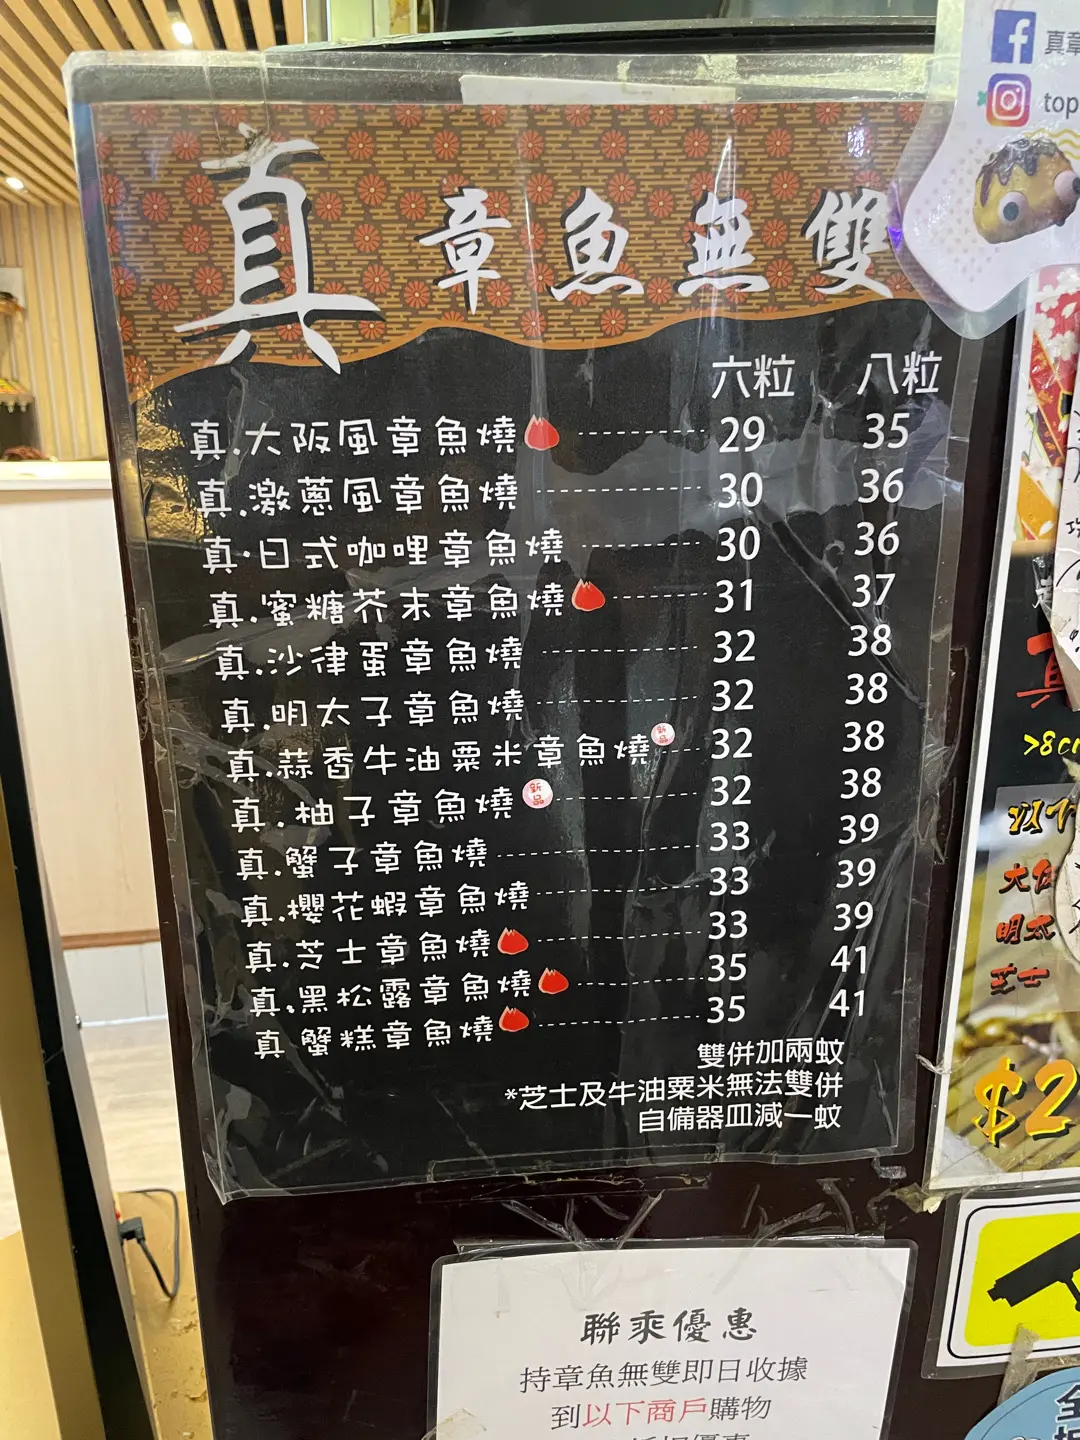 真 章魚無雙
六粒 八粒
真.大阪風章魚燒 29 35
真.激蔥風章魚燒 30 36
真.日式咖哩章魚燒 30 36
真.蜜糖芥末章魚燒 31 37
真.沙律蛋章魚燒 32 38
真.明太子章魚燒 32 38
真.蒜香牛油粟米章魚燒 新品 32 38
真.柚子章魚燒 新品 32 38
真.蟹子章魚燒 33 39
真.櫻花蝦章魚燒 33 39
真.芝士章魚燒 33 39
真.黑松露章魚燒 35 41
真 蟹糕章魚燒 35 41
雙併加兩蚊
*芝士及牛油粟米無法雙併
自備器皿減一蚊
聯乘優惠
持章魚無雙即日收據
到以下商戶購物
真章
top
>8cm
明太
芝士
$2
全